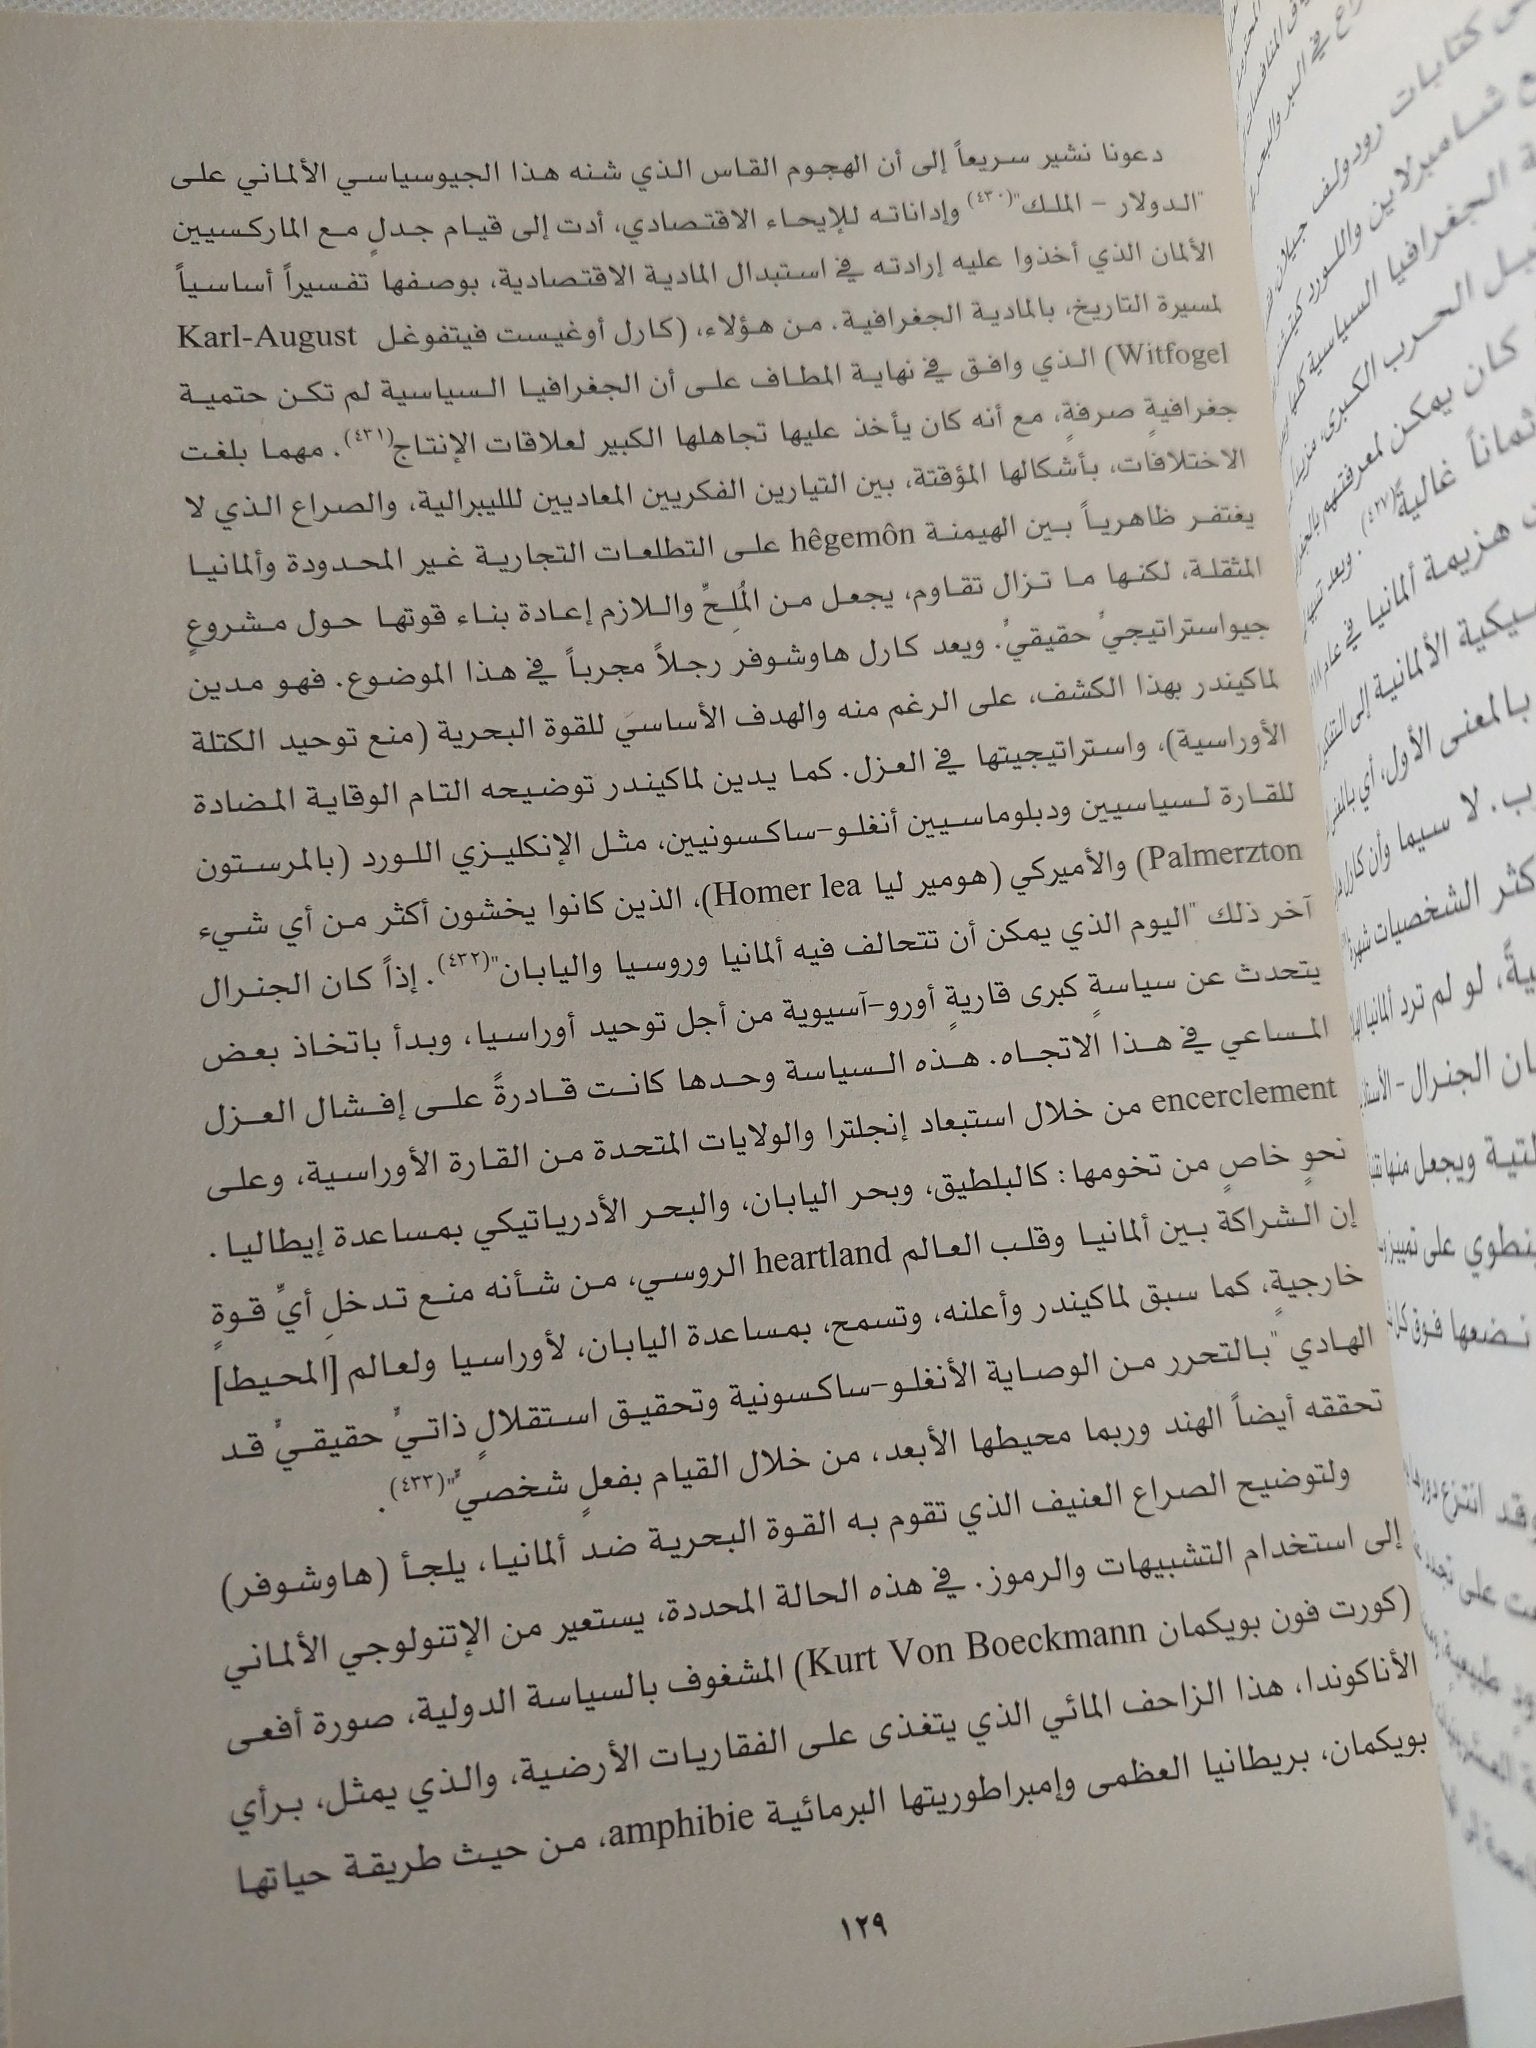 دعونا نشير سريعاً إلى أن الهجوم القاس الذي شنه هذا الجيوسياسي الألماني على
"الدولار – الملك"(٤٣٠) وإداناته للإيحاء الاقتصادي، أدت إلى قيام جدلٍ مع الماركسيين
الألمان الذي أخذوا عليه إرادته في استبدال المادية الاقتصادية، بوصفها تفسيراً أساسياً
لمسيرة التاريخ، بالمادية الجغرافية. من هؤلاء، (كارل أوغيست فيتفوغل Karl-August
Witfogel) الذي وافق في نهاية المطاف على أن الجغرافيا السياسية لم تكن حتمية
جغرافيةٍ صرفةٍ، مع أنه كان يأخذ عليها تجاهلها الكبير لعلاقات الإنتاج(٤٣١). مهما بلغت
الاختلافات، بأشكالها المؤقتة، بين التيارين الفكريين المعاديين للليبرالية، والصراع الذي لا
يغتفر ظاهرياً بين الهيمنة hêgemôn على التطلعات التجارية غير المحدودة وألمانيا
المثقلة، لكنها ما تزال تقاوم، يجعل من المُلِحِّ واللازم إعادة بناء قوتها حول مشروعٍ
جيواستراتيجيٍّ حقيقيٍّ. ويعد كارل هاوشوفر رجلاً مجرباً في هذا الموضوع. فهو مدين
لماكيندر بهذا الكشف، على الرغم منه والهدف الأساسيَ للقوة البحرية (منع توحيد الكتلة
الأوراسية)، واستراتيجيتها في العزل. كما يدين لماكيندر توضيحه التام الوقاية المضادة
للقارة لسياسيين ودبلوماسيين أنغلو-ساكسونيين، مثل الإنكليزي اللورد (بالمرستون
Palmerzton) والأميركي (هومير ليا Homer lea)، الذين كانوا يخشون أكثر من أي شيء
آخر ذلك "اليوم الذي يمكن أن تتحالف فيه ألمانيا وروسيا واليابان"(٤٣٢). إذاً كان الجنرال
يتحدث عن سياسةٍ كبرى قاريةٍ أورو-آسيوية من أجل توحيد أوراسيا، وبدأ باتخاذ بعض
المساعي في هذا الاتجاه. هذه السياسة وحدها كانت قادرةً على إفشال العزل
encerclement من خلال استبعاد إنجلترا والولايات المتحدة من القارة الأوراسية، وعلى
نحوٍ خاصٍ من تخومها: كالبلطيق، وبحر اليابان، والبحر الأدرياتيكي بمساعدة إيطاليا.
إن الشراكة بين ألمانيا وقلب العالم heartland الروسي، من شأنه منع تدخلِ أيِّ قوةٍ
خارجيةٍ، كما سبق لماكيندر وأعلنه، وتسمح، بمساعدة اليابان، لأوراسيا ولعالم [المحيط]
الهادي "بالتحرر من الوصاية الأنغلو-ساكسونية وتحقيق استقلالٍ ذاتيٍّ حقيقيٍّ قد
تحققه أيضاً الهند وربما محيطها الأبعد، من خلال القيام بفعلٍ شخصيٍّ"(٤٣٣).
ولتوضيح الصراع العنيف الذي تقوم به القوة البحرية ضد ألمانيا، يلجأ (هاوشوفر)
إلى استخدام التشبيهات والرموز. في هذه الحالة المحددة، يستعير من الإتنولوجي الألماني
(كورت فون بويكمان Kurt Von Boeckmann) المشغوف بالسياسة الدولية، صورة أفعى
الأناكوندا، هذا الزاحف المائي الذي يتغذى على الفقاريات الأرضية، والذي يمثل، برأي
بويكمان، بريطانيا العظمى وإمبراطوريتها البرمائية amphibie، من حيث طريقة حياتها
١٢٩